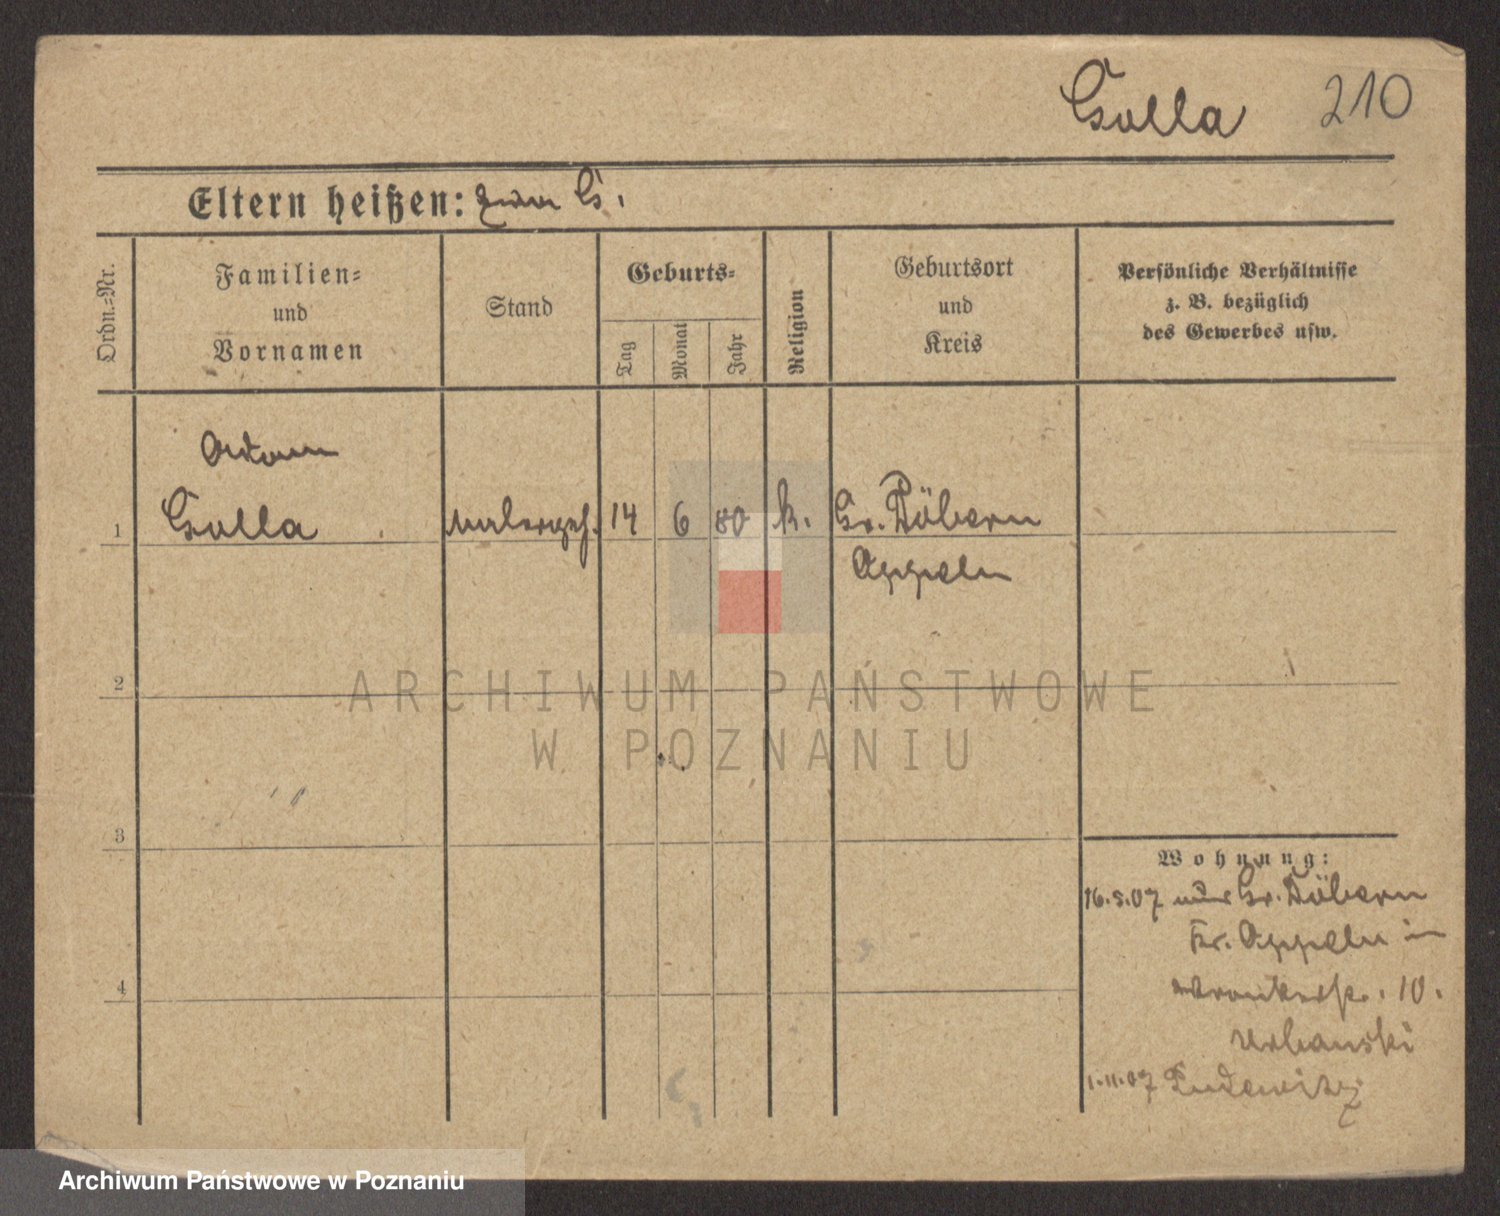 Golla 210
Eltern heißen: G.
Ordn.=Nr.
Familien=
und
Vornamen
Stand
Geburts=
Tag
Monat
Jahr
Religion
Geburtsort
und
Kreis
Persönliche Verhältnisse
z. B. bezüglich
des Gewerbes usw.
Adam
1 Golla Malergeh. 14 6 80 k. Gr. Döbern
Oppeln
2
ARCHIWUM PAŃSTWOWE
W POZNANIU
3
Wohnung:
16.5.07 Gr. Döbern
Kr. Oppeln in
Wronkerstr. 10.
Urbanski
1.11.07 Pudewitz
4
Archiwum Państwowe w Poznaniu